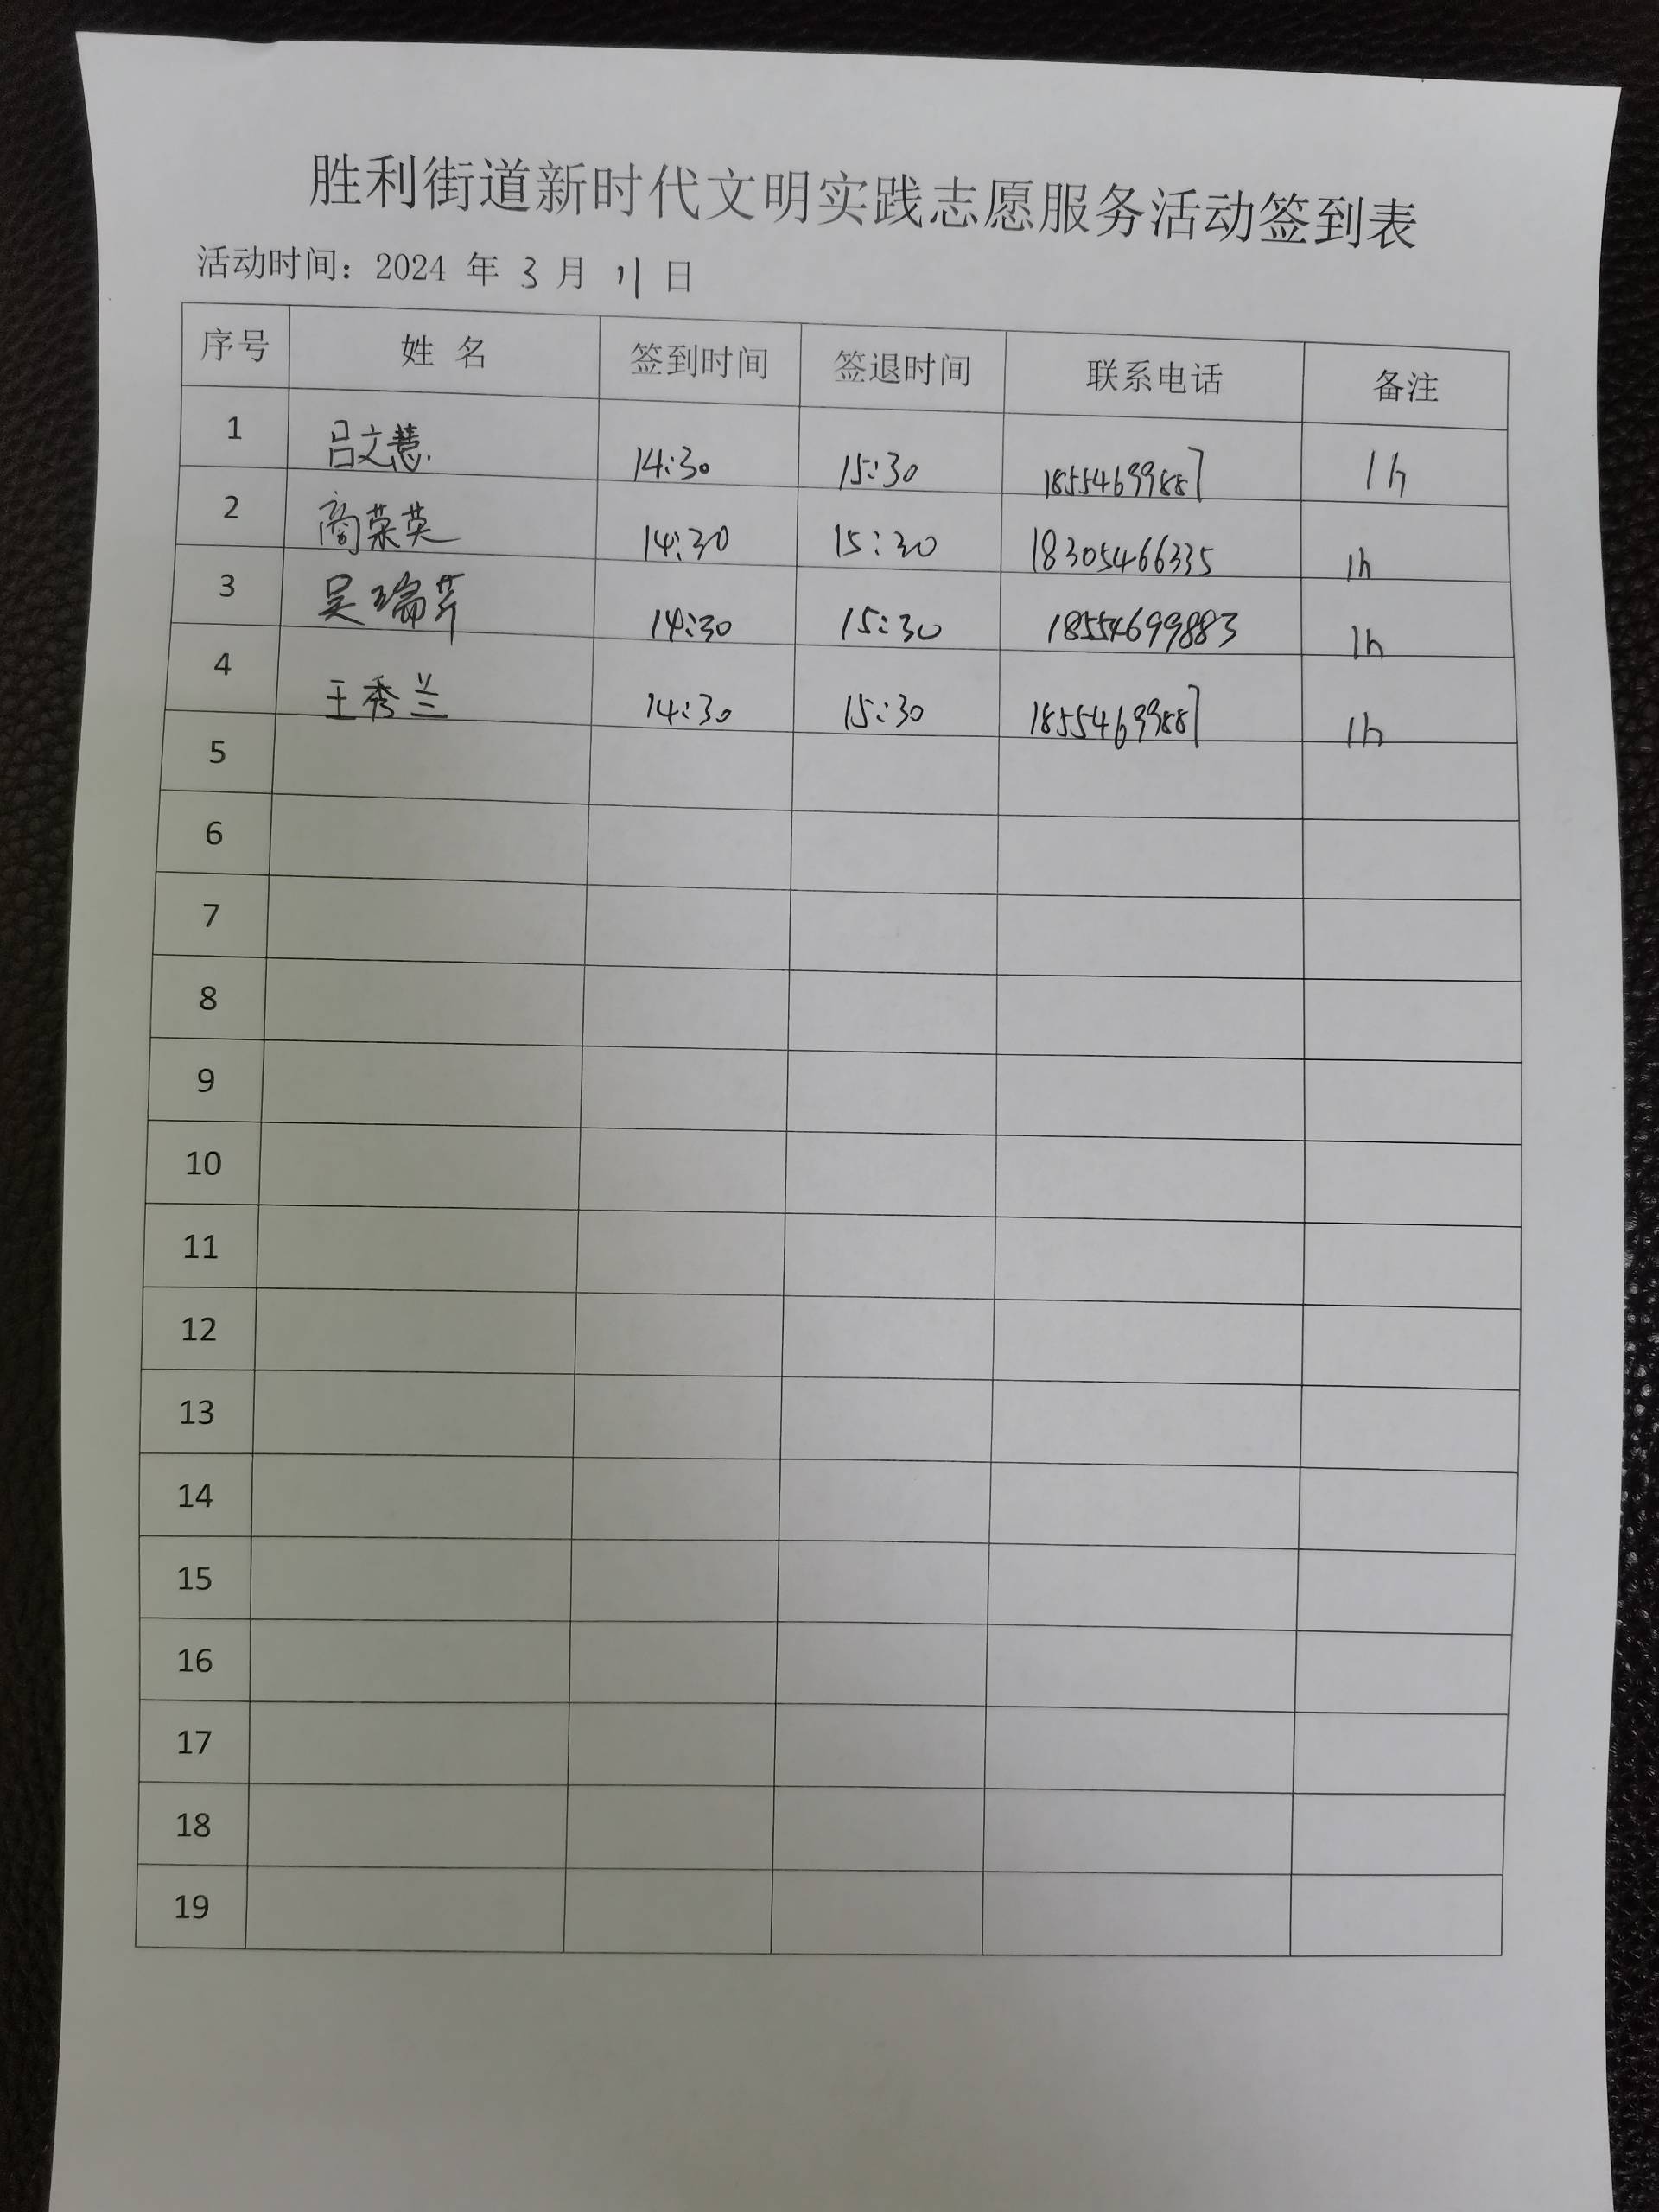 胜利街道新时代文明实践志愿服务活动签到表
活动时间：2024 年 3 月 11 日
序号 姓 名 签到时间 签退时间 联系电话 备注
1 吕文慧 14:30 15:30 18554699887 1h
2 商荣英 14:30 15:30 18305466335 1h
3 吴瑞芹 14:30 15:30 18554699883 1h
4 王秀兰 14:30 15:30 18554699887 1h
5
6
7
8
9
10
11
12
13
14
15
16
17
18
19